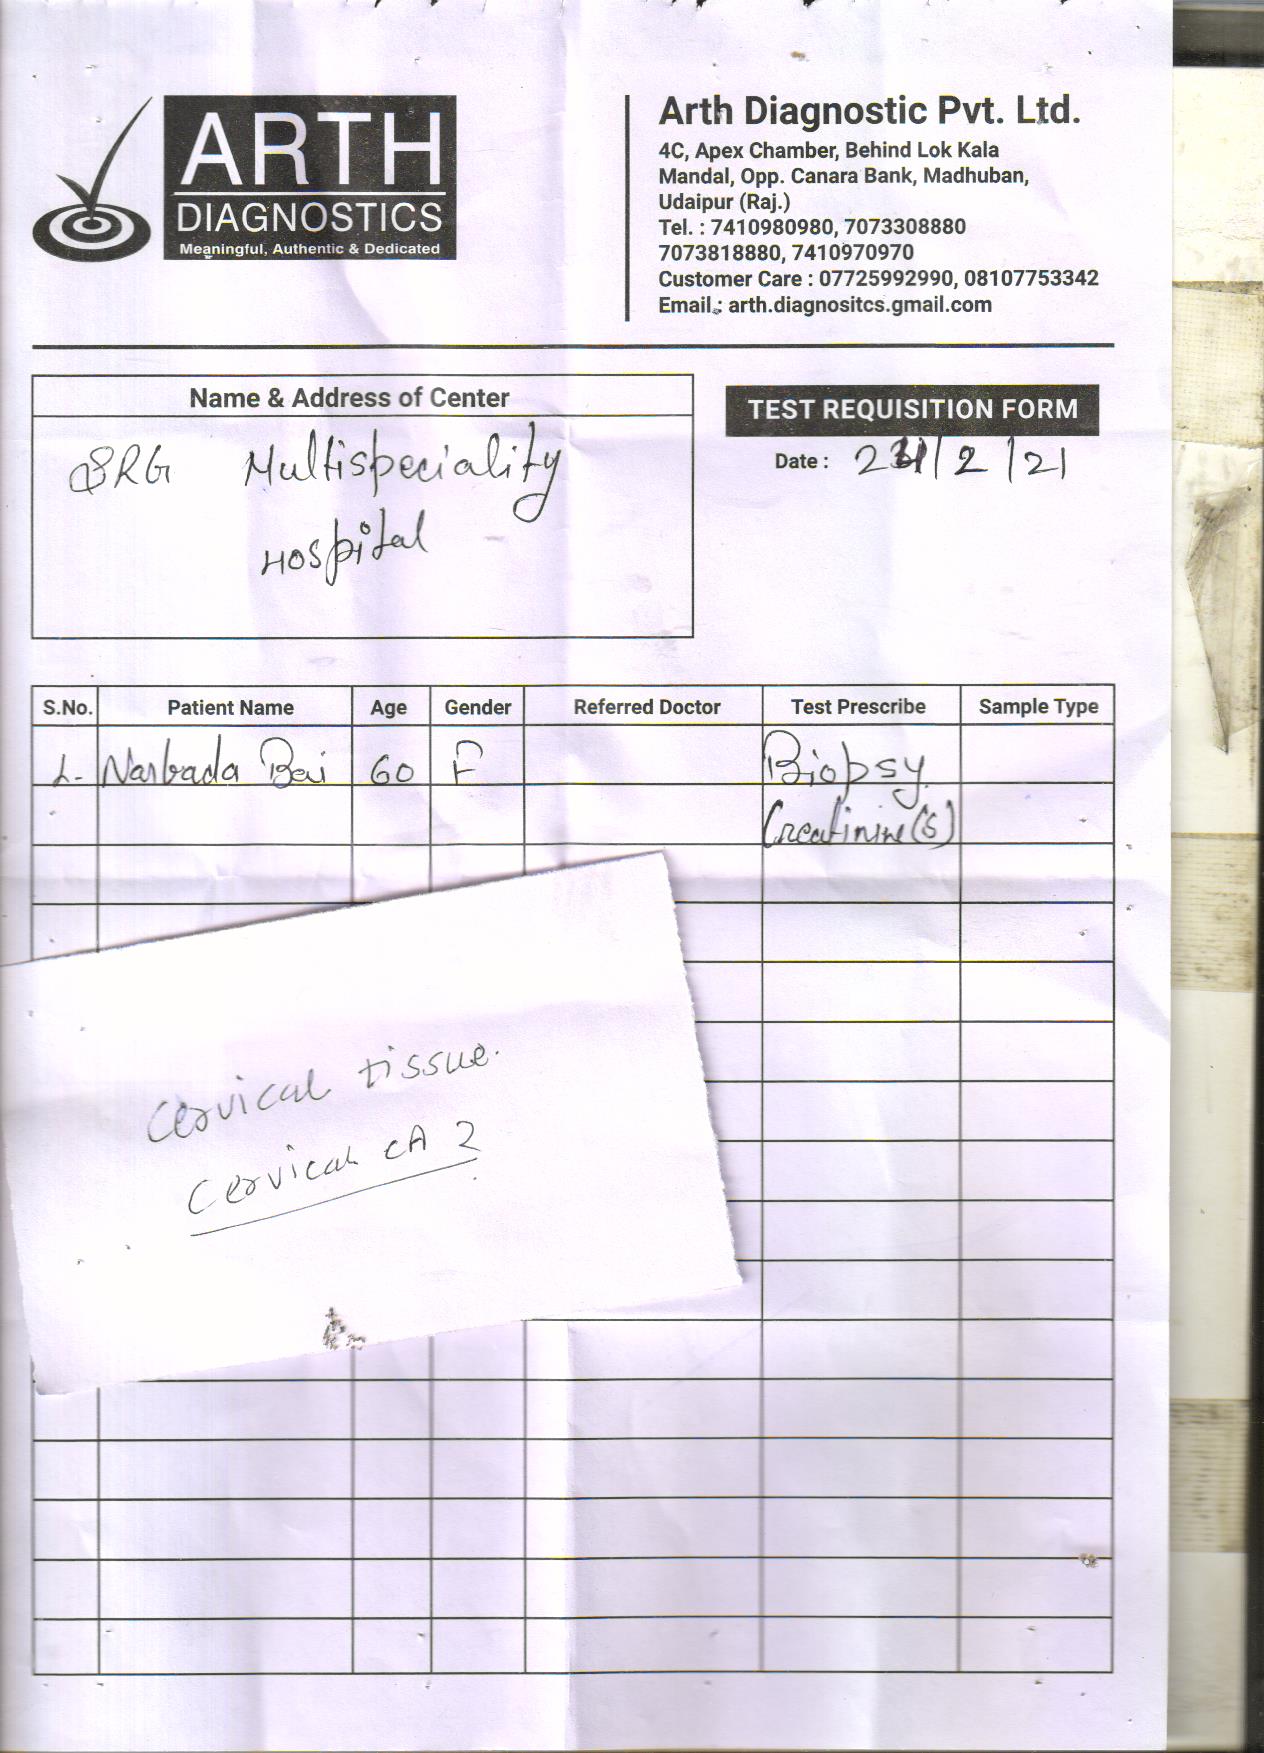 ARTH
DIAGNOSTICS
Meaningful, Authentic & Dedicated
Arth Diagnostic Pvt. Ltd.
4C, Apex Chamber, Behind Lok Kala
Mandal, Opp. Canara Bank, Madhuban,
Udaipur (Raj.)
Tel. : 7410980980, 7073308880
7073818880, 7410970970
Customer Care : 07725992990, 08107753342
Email.: arth.diagnositcs.gmail.com
Name & Address of Center
SRG Multispeciality
Hospital
TEST REQUISITION FORM
Date : /2/21
S.No. Patient Name Age Gender Referred Doctor Test Prescribe Sample Type
1- Narbada Bai 60 F Biopsy
Creatinine(S)
Cervical tissue.
Cervical CA 2